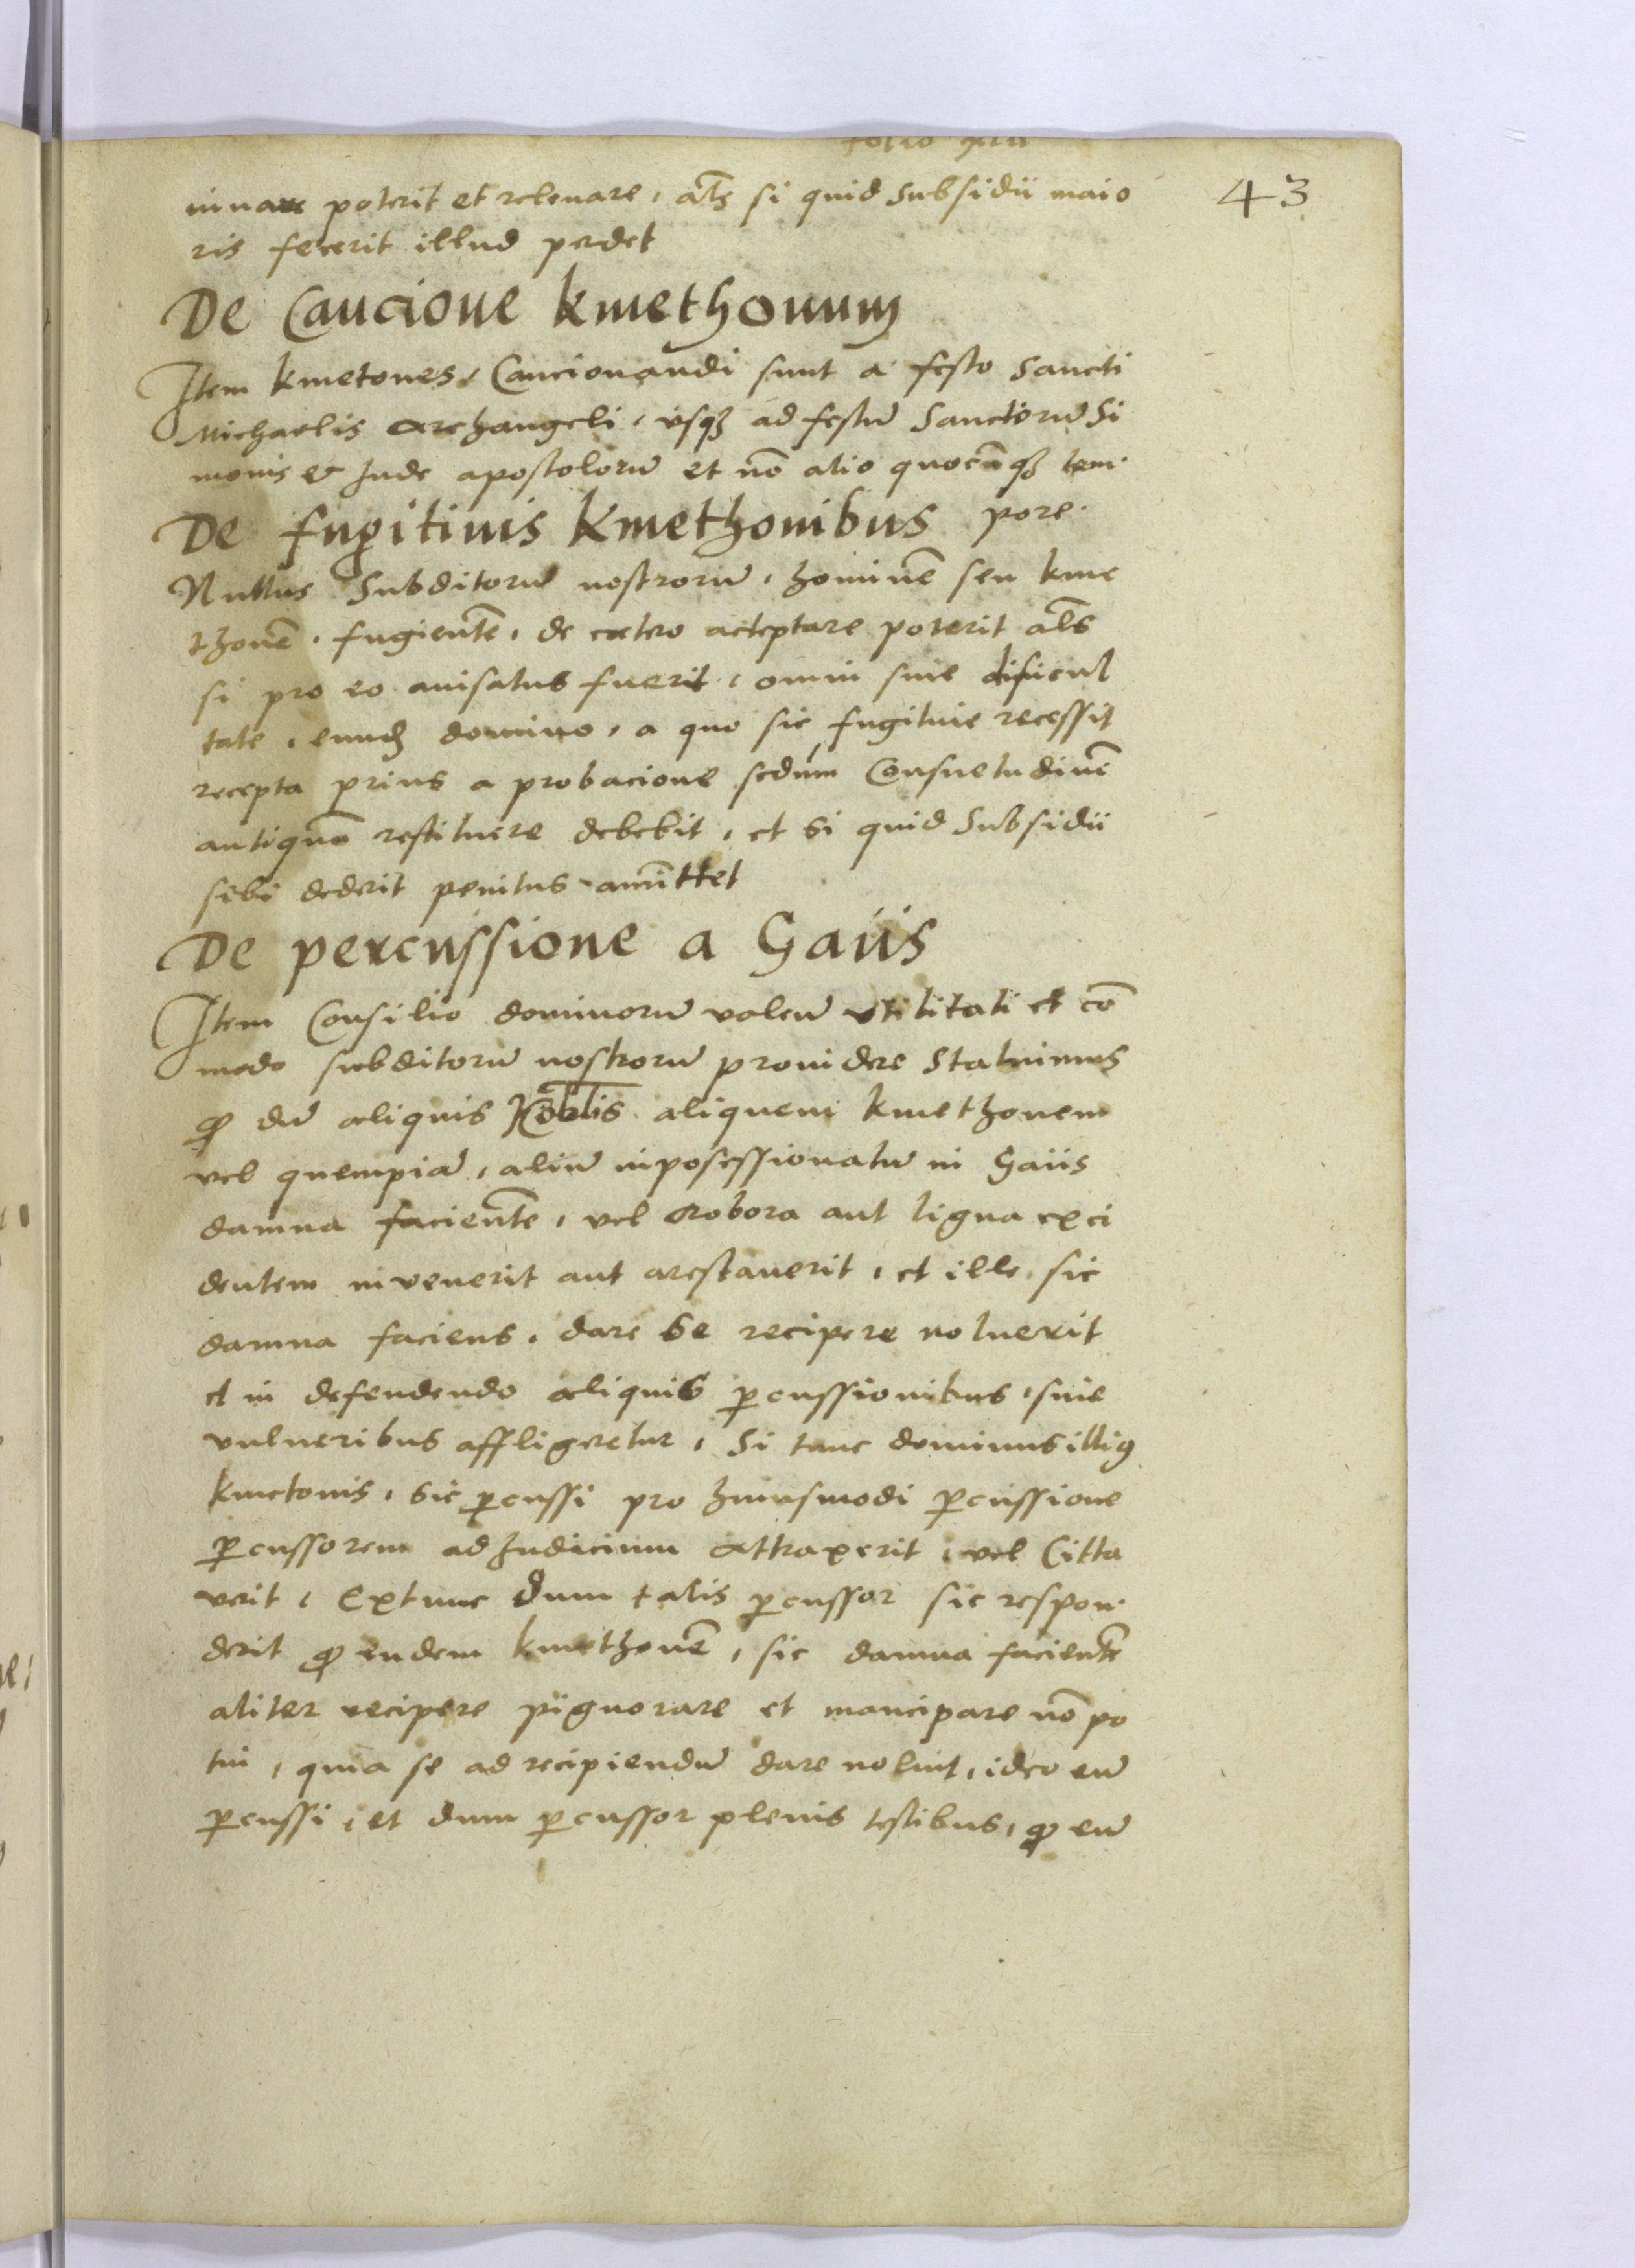 43
iuuare poterit et releuare, al̄s si quid Subsidii maio
ris fecerit illud perdet
De Caucione kmethonum
Item kmetones, Caucionandi sunt a festo Sancti
Michaelis archangeli, vsqꝫ ad festū Sanctorū Si
monis et Jude apostolorū et nō alio quocūqꝫ tem.
pore.
De fugitiuis kmethonibus
Nullus Subditorū nostrorū, hominē seu kme
thonē, fugientē, de cetero acceptare poterit al̄s
si pro eo auisatus fuerit, omni siue dificul
tate, eundꝫ domino, a quo sic fugitiue recessit
recepta prius a probacione sedūm Consuetudinē
antiquā restituere debebit, et si quid Subsidii
sibi dederit penitus amittet
De percussione a Gaiis
Item Consilio dominorū volen̄ vtilitati et cō
modo subditorū nostrorū prouidere Statuimus
ꝙ dū aliquis Nobīlis aliquem kmethonem
vel quempiā, aliū inposessionatū in Gaiis
damna facientē, vel Robora aut ligna exci
dentem invenerit aut arestauerit, et ille sic
damna faciens, dare se recipere noluerit
et in defendendo aliquis ꝑcussionibus, siue
vulneribus affligeretur, Si tunc dominus illiꝯ
kmetonis, sic ꝑcussi pro huiusmodi ꝑcussione
ꝑcussorem ad Judicium attraxerit, vel Citta
verit, Extunc dum talis ꝑcussor sic respon.
derit ꝙ eundem kmethonē, sic damna facientē
aliter recipere pignorare et mancipare nō po
tui, quia se ad recipiendū dare noluit, ideo eū
ꝑcussi, et dum ꝑcussor plenis testibus, ꝙ eū